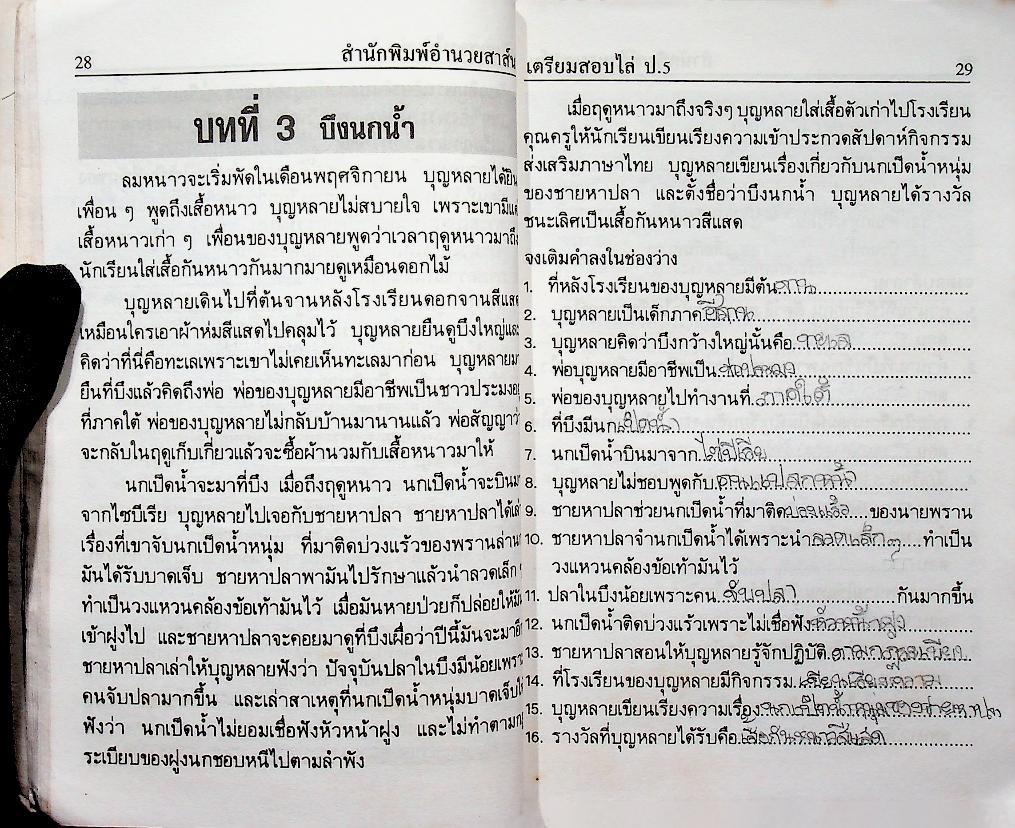 28
สำนักพิมพ์อำนวยสาส์น
บทที่ 3 บึงนกน้ำ
ลมหนาวจะเริ่มพัดในเดือนพฤศจิกายน บุญหลายได้ยิน
เพื่อน ๆ พูดถึงเสื้อหนาว บุญหลายไม่สบายใจ เพราะเขามีแต่
เสื้อหนาวเก่า ๆ เพื่อนของบุญหลายพูดว่าเวลาฤดูหนาวมาถึง
นักเรียนใส่เสื้อกันหนาวกันมากมายดูเหมือนดอกไม้
บุญหลายเดินไปที่ต้นจานหลังโรงเรียนดอกจานสีแสด
เหมือนใครเอาผ้าห่มสีแสดไปคลุมไว้ บุญหลายยืนดูบึงใหญ่และ
คิดว่าที่นี่คือทะเลเพราะเขาไม่เคยเห็นทะเลมาก่อน บุญหลายมา
ยืนที่บึงแล้วคิดถึงพ่อ พ่อของบุญหลายมีอาชีพเป็นชาวประมงอยู่
ที่ภาคใต้ พ่อของบุญหลายไม่กลับบ้านมานานแล้ว พ่อสัญญาว่า
จะกลับในฤดูเก็บเกี่ยวแล้วจะซื้อผ้านวมกับเสื้อหนาวมาให้
นกเป็ดน้ำจะมาที่บึง เมื่อถึงฤดูหนาว นกเป็ดน้ำจะบินมา
จากไซบีเรีย บุญหลายไปเจอกับชายหาปลา ชายหาปลาได้เล่า
เรื่องที่เขาจับนกเป็ดน้ำหนุ่ม ที่มาติดบ่วงแร้วของพรานล่านก
มันได้รับบาดเจ็บ ชายหาปลาพามันไปรักษาแล้วนำลวดเล็ก ๆ
ทำเป็นวงแหวนคล้องข้อเท้ามันไว้ เมื่อมันหายป่วยก็ปล่อยให้มัน
เข้าฝูงไป และชายหาปลาจะคอยมาดูที่บึงเผื่อว่าปีนี้มันจะมาอีก
ชายหาปลาเล่าให้บุญหลายฟังว่า ปัจจุบันปลาในบึงมีน้อยเพราะ
คนจับปลามากขึ้น และเล่าสาเหตุที่นกเป็ดน้ำหนุ่มบาดเจ็บให้
ฟังว่า นกเป็ดน้ำไม่ยอมเชื่อฟังหัวหน้าฝูง และไม่ทำตามกฎ
ระเบียบของฝูงนกชอบหนีไปตามลำพัง
เตรียมสอบไล่ ป.5
29
เมื่อฤดูหนาวมาถึงจริงๆ บุญหลายใส่เสื้อตัวเก่าไปโรงเรียน
คุณครูให้นักเรียนเขียนเรียงความเข้าประกวดสัปดาห์กิจกรรม
ส่งเสริมภาษาไทย บุญหลายเขียนเรื่องเกี่ยวกับนกเป็ดน้ำหนุ่ม
ของชายหาปลา และตั้งชื่อว่าบึงนกน้ำ บุญหลายได้รางวัล
ชนะเลิศเป็นเสื้อกันหนาวสีแสด
จงเติมคำลงในช่องว่าง
1. ที่หลังโรงเรียนของบุญหลายมีต้นจาน
2. บุญหลายเป็นเด็กภาคอีสาน
3. บุญหลายคิดว่าบึงกว้างใหญ่นั้นคือ ทะเล
4. พ่อบุญหลายมีอาชีพเป็น
5. พ่อของบุญหลายไปทำงานที่ ภาคใต้
6. ที่บึงมีนกเป็ดน้ำ
7. นกเป็ดน้ำบินมาจาก
8. บุญหลายไม่ชอบพูดกับคนแปลกหน้า
9. ชายหาปลาช่วยนกเป็ดน้ำที่มาติดบ่วงแร้ว ของนายพราน
10. ชายหาปลาจำนกเป็ดน้ำได้เพราะนำลวดเล็กๆ ทำเป็น
วงแหวนคล้องข้อเท้ามันไว้
11. ปลาในบึงน้อยเพราะคน จับปลา กันมากขึ้น
12. นกเป็ดน้ำติดบ่วงแร้วเพราะไม่เชื่อฟังหัวหน้าฝูง
13. ชายหาปลาสอนให้บุญหลายรู้จักปฏิบัติ ตามกฎระเบียบ
14. ที่โรงเรียนของบุญหลายมีกิจกรรม เขียนเรียงความ
15. บุญหลายเขียนเรียงความเรื่อง นกเป็ดน้ำหนุ่ม
16. รางวัลที่บุญหลายได้รับคือ เสื้อกันหนาวสีแสด